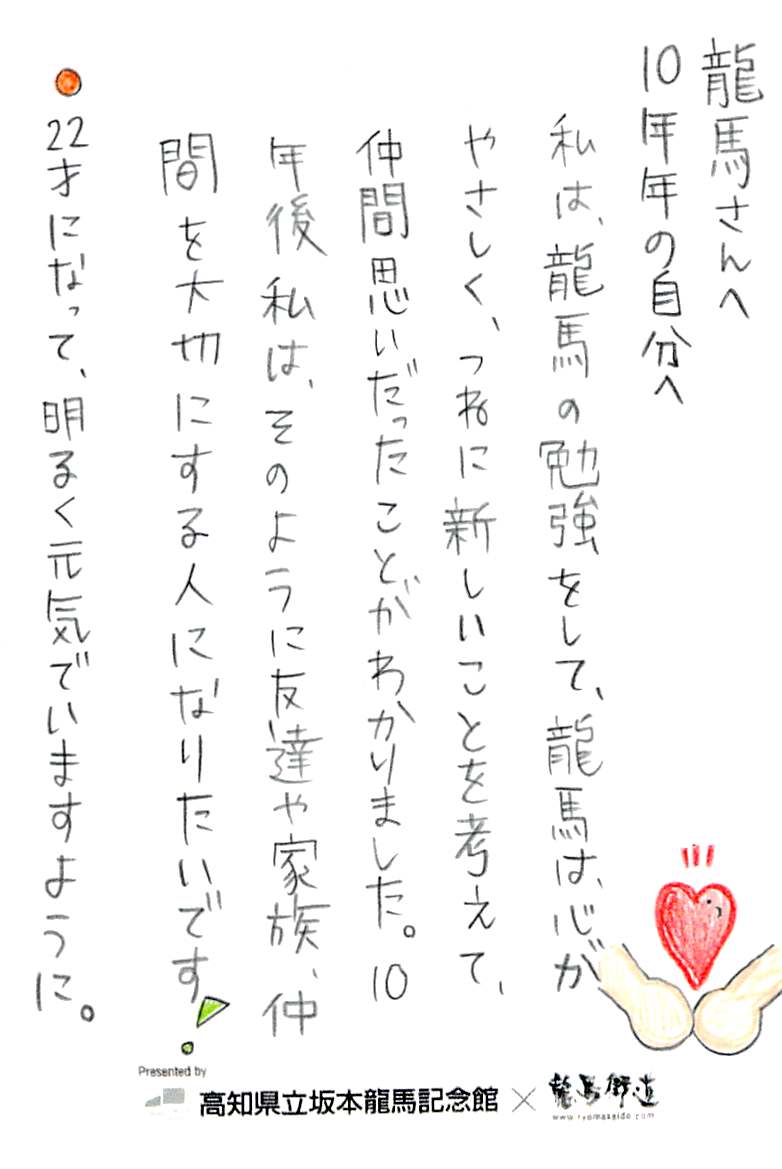 龍馬さんへ
10年年の自分へ
私は、龍馬の勉強をして、龍馬は、心が
やさしく、つねに新しいことを考えて、
仲間思いだったことがわかりました。10
年後私は、そのように友達や家族、仲
間を大切にする人になりたいです!
22才になって、明るく元気でいますように。
Presented by
高知県立坂本龍馬記念館×龍馬街道
www.ryomakaido.com